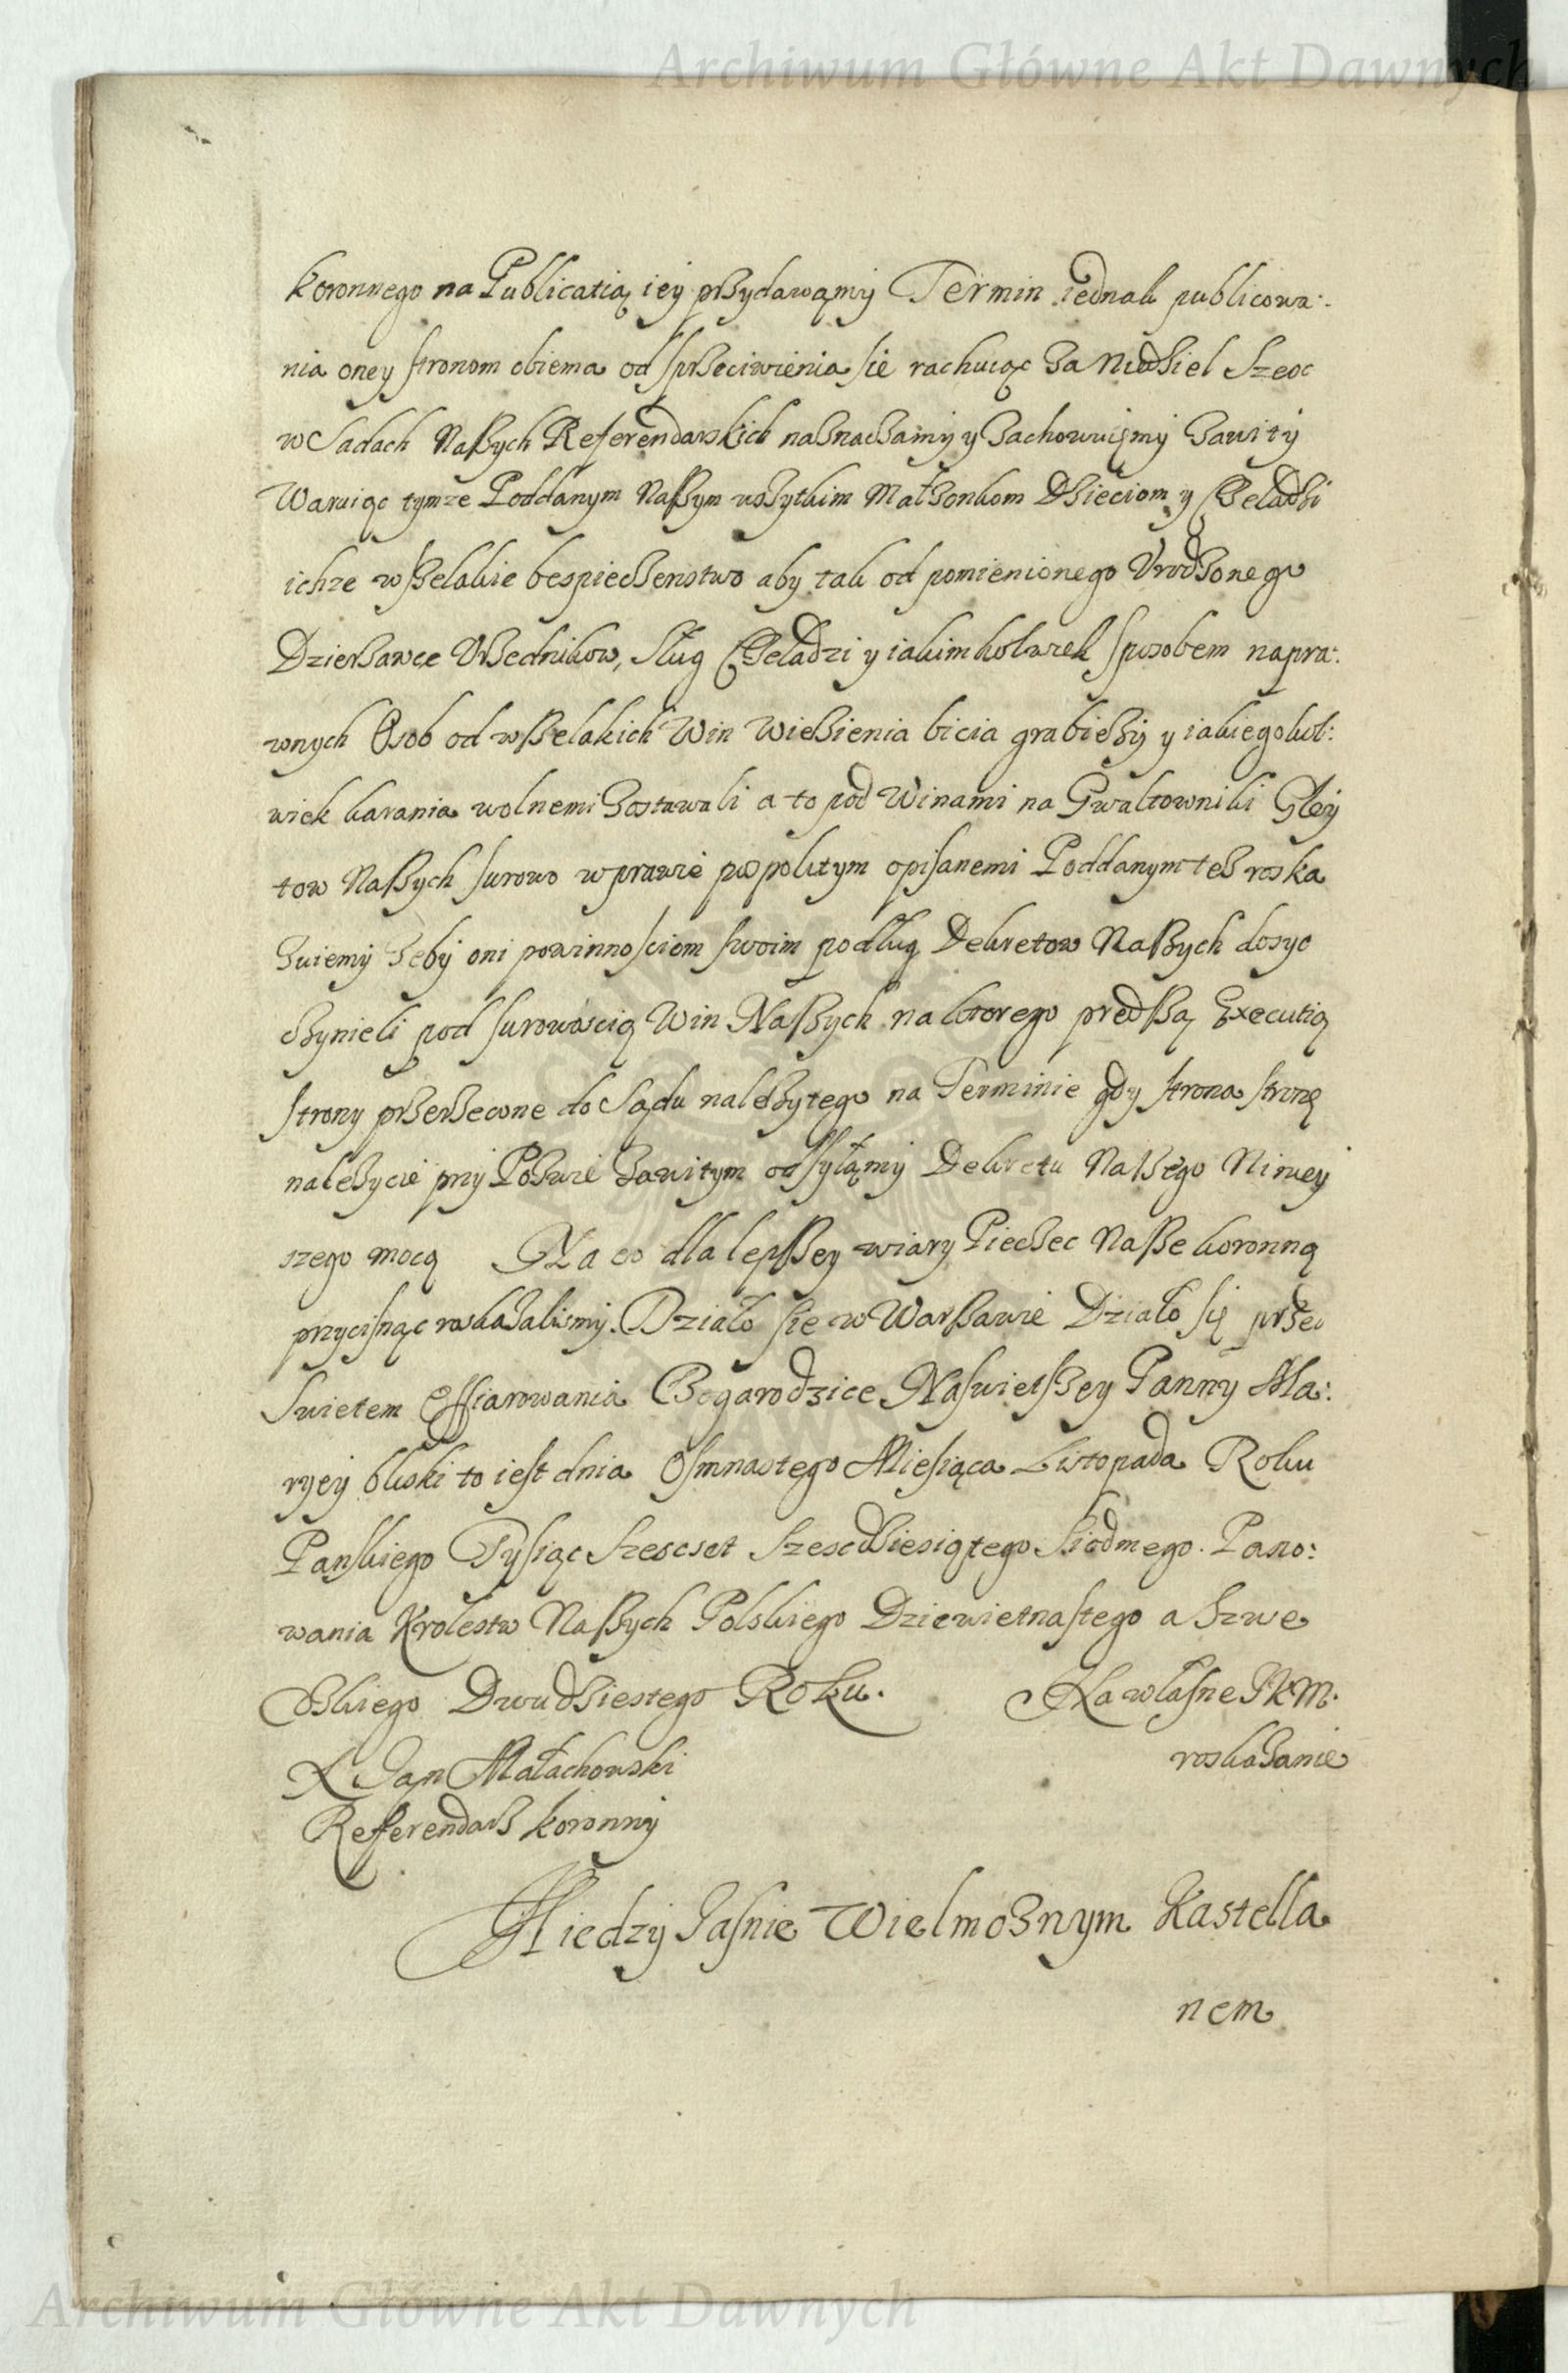 Archiwum Główne Akt Dawnych
koronnego na Publicatią iey przydawamy Termin iednak publicowa:
nia oney stronom obiema od sprzeciwienia sie rachuiąc za Niedziel Szesc
w Sadach Naszych Referendarskich naznaczamy y zachowuięmy zawity
Waruiąc tymze Poddanym Naszym wszytkim Małzonkom Dzieciom y Czeladzi
ichze wszelakie bespieczenstwo aby tak od pomienionego Vrodzonego
Dzierzawce Vrzednikow, Sług Czeladzi y iakimkolwiek sposobem napra:
wnych Osob od wszelakich Win Wiezienia bicia grabiezy y iakiegokol:
wiek karania wolnemi zostawali a to pod Winami na Gwaltowniki Gley
tow Naszych surowo w prawie pospolitym opisanemi Poddanym tez roska
zuiemy zeby oni powinnosciom swoim podług Dekretow Naszych dosyc
czynieli pod surowoscią Win Naszych na ktorego predszą Executią
strony przerzeczone do Sądu nalezytego na Terminie gdy strona stronę
nalezycie przy Pozwie zawitym odsyłamy Dekretu Naszego Niniey
szego mocą Na co dla lepszey wiary Pieczec Nasze koronną
przycisnąc roskazalismy. Działo sie w Warszawie Działo się przed
Swietem Offiarowania Bogarodzice Naswietszey Panny Ma:
ryey bliski to iest dnia Osmnastego Miesiąca Listopada Roku
Panskiego Tysiąc Szescset Szescdziesiątego Siodmego. Pano:
wania Krolestw Naszych Polskiego Dziewietnastego a Szwe
dzkiego Dwudziestego Roku. Na własne JKM.
roskazanie
X Jan Małachowski
Referendarz koronny
Miedzy Jasnie Wielmoznym Kastella
nem
Archiwum Główne Akt Dawnych